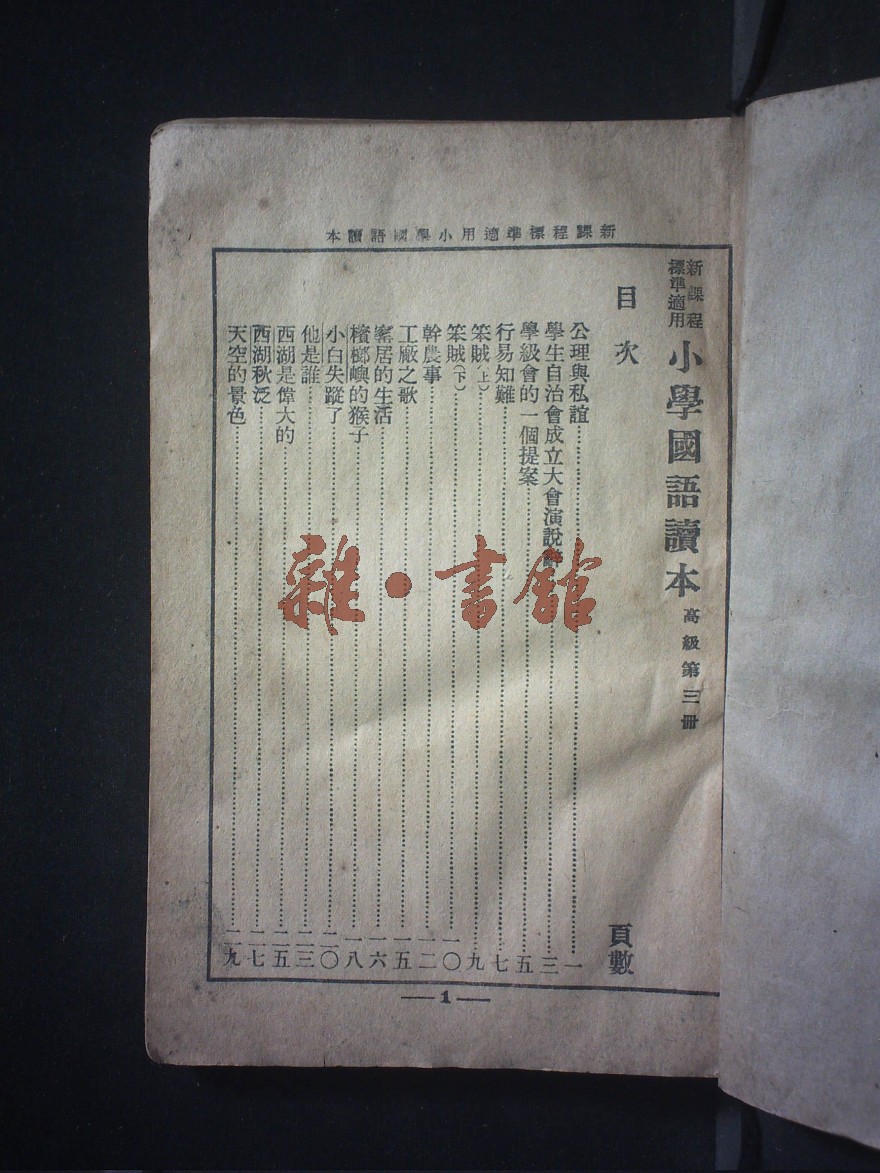 新課程標準適用小學國語讀本
新課程標準適用
小學國語讀本 高級第三冊
目次 頁數
公理與私誼 一
學生自治會成立大會演說 三
學級會的一個提案 五
行易知難 七
笨賊(上) 九
笨賊(下) 一〇
幹農事 一二
工廠之歌 一五
居的生活 一六
檳榔嶼的猴子 一八
小白失蹤了 二〇
他是誰 二三
西湖是偉大的 二五
西湖秋泛 二七
天空的景色 二九
— 1 —
雜·書館